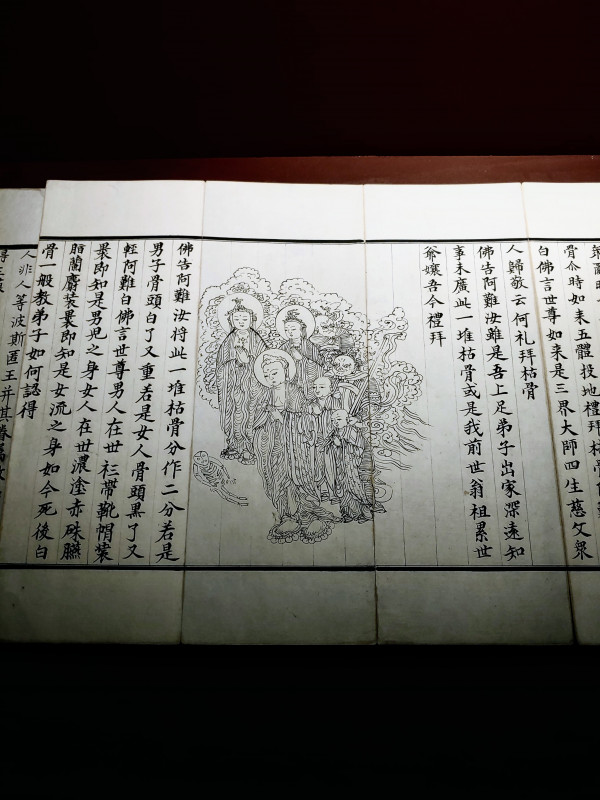 骨尒時如来五體投地禮拜
白佛言世尊如来是三界大師四生慈父衆
人歸敬云何礼拜枯骨
佛告阿難汝雖是吾上足弟子出家深遠知
事未廣此一堆枯骨或是我前世翁祖累世
爺孃吾今禮拜
佛告阿難汝将此一堆枯骨分作二分若是
男子骨頭白了又重若是女人骨頭黒了又
輕阿難白佛言世尊男人在世衫帶靴帽裝
裹即知是男兒之身女人在世濃塗赤硃臙
脂蘭麝裝裹即知是女流之身如今死後白
骨一般教弟子如何認得
人非人等波斯匿王并其眷属